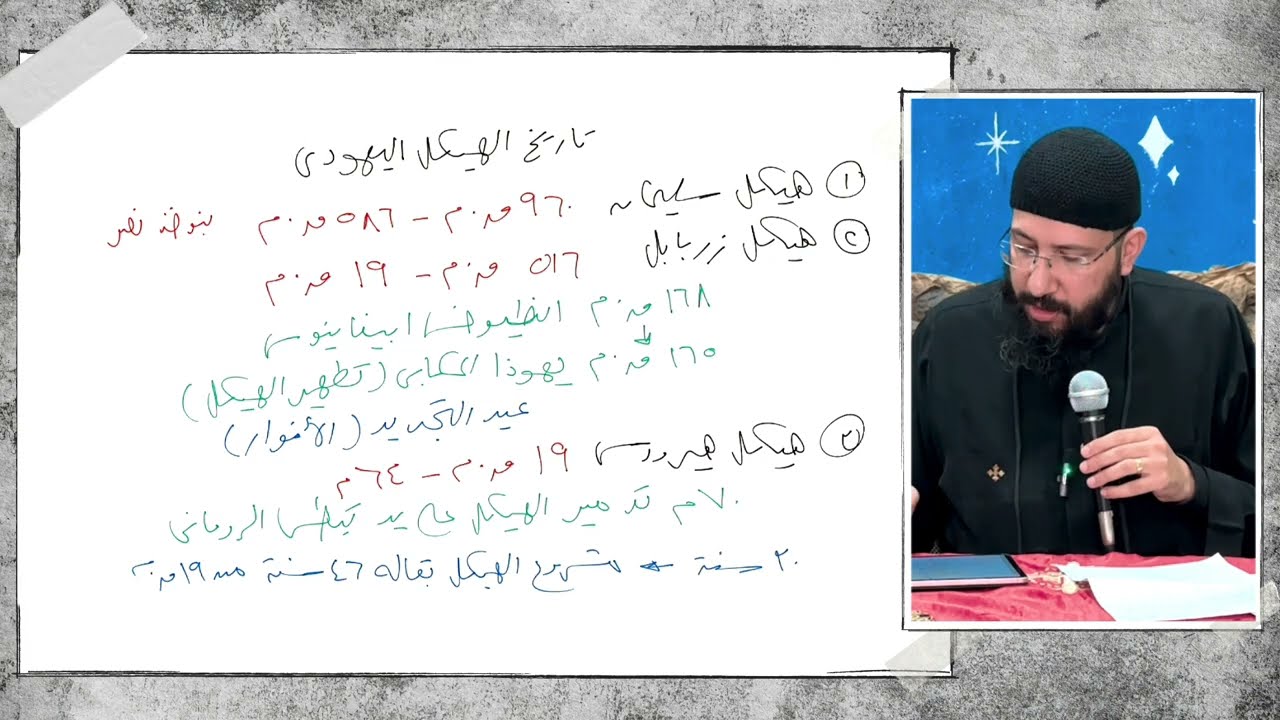 تاريخ الهيكل اليهودى
١ هيكل سليمان ٩٦٠ ق.م – ٥٨٦ ق.م نبوخذ نصر
٢ هيكل زربابل
٥١٦ ق.م – ١٩ ق.م
١٦٨ ق.م انطيوخس ابيفانيوس
١٦٥ ق.م يهوذا المكابى (تطهير الهيكل)
عيد التجديد (الأنوار)
٣ هيكل هيرودس ١٩ ق.م – ٦٤ م
٧٠ م تدمير الهيكل على يد تيطس الرومانى
٢٠ سنة مشروع الهيكل بقاله ٤٦ سنة من ١٩ ق.م